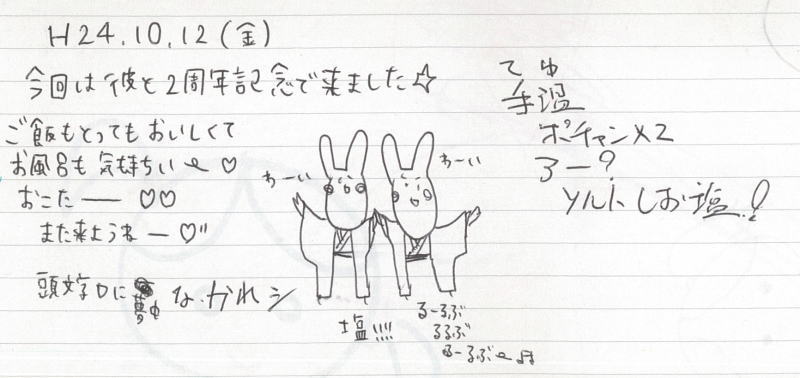 H24.10.12(金)
今回は彼と2周年記念で来ました☆
ご飯もとってもおいしくて
お風呂も気持ちい〜♡
おこたー♡♡
また来ようねー♡"
頭文字Dに夢中
なかれシ
わーい
わーい
塩!!!!
るーるぶ
るるぶ
るーるぶ〜♫
てゆ
手湯
ポチャン×2
ろー?
ソルトしお塩!